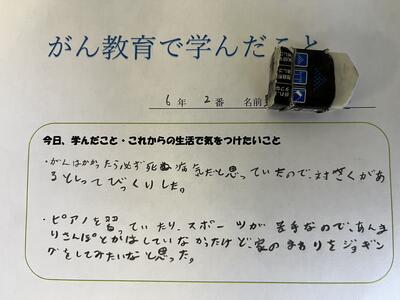 がん教育で学んだこと
6年 2番 名前
今日、学んだこと・これからの生活で気をつけたいこと
・がんはかかったら必ず死ぬ病気だと思っていたので、対さくがあ
るとしってびっくりした。
・ピアノを習っていたり、スポーツが苦手なので、あんま
りさんぽとかはしていなかったけど、家のまわりをジョギン
グをしてみたいなと思った。